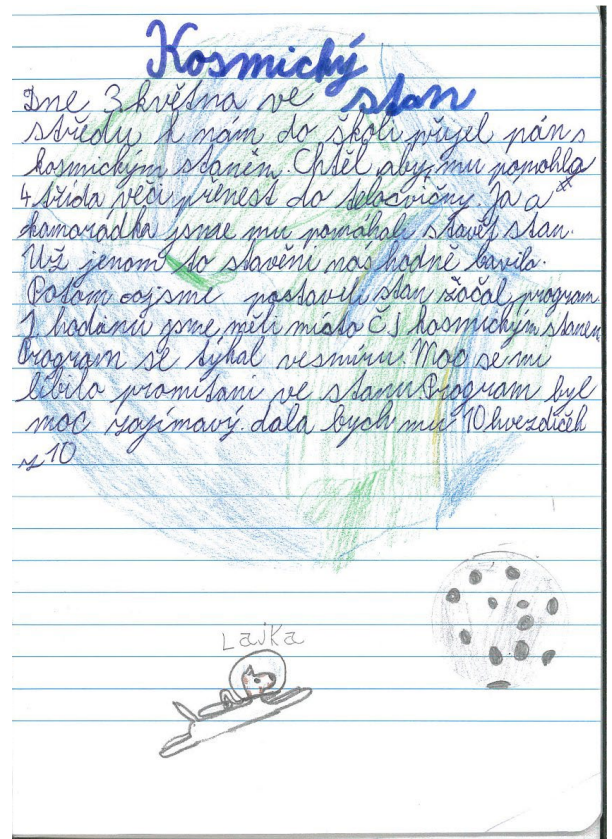 Kosmický
stan
Dne 3 května ve
středu k nám do školi přijel pán s
kosmickým staněm. Chtěl, aby mu pomohla
4 třída věci přenest do telocvičny. Já a
kamarádka jsme mu pomáhali stavět stan.
Už jenom to stavěni nás hodně bavilo.
Potom co jsme postavili stan začal program.
1 hodinu jsme měli místo ČJ kosmickým stanem
Program se týkal vesmíru. Moc se mi
líbilo promítani ve stanu Program byl
moc zajímavý. dala bych mu 10 hvezdiček
z 10
Lajka